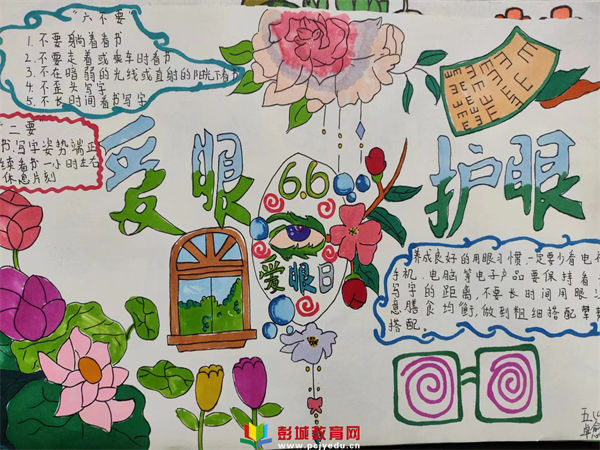 "六不要"
1.不要躺着看书
2.不要走着或乘车时看书
3.不在暗弱的光线或直射的阳光下看书
4.不歪头写字
5.不长时间看书写字
"二要
书、写字姿势端正
续看书一小时左右
休息片刻
爱眼
6.6
爱眼日
护眼
养成良好的用眼习惯,一定要少看电视
手机、电脑等电子产品要保持看
写字的距离,不要长时间用眼
意膳食均衡,做到粗细搭配
搭配。
五
彭城教育网
www.pcjyedu.cn